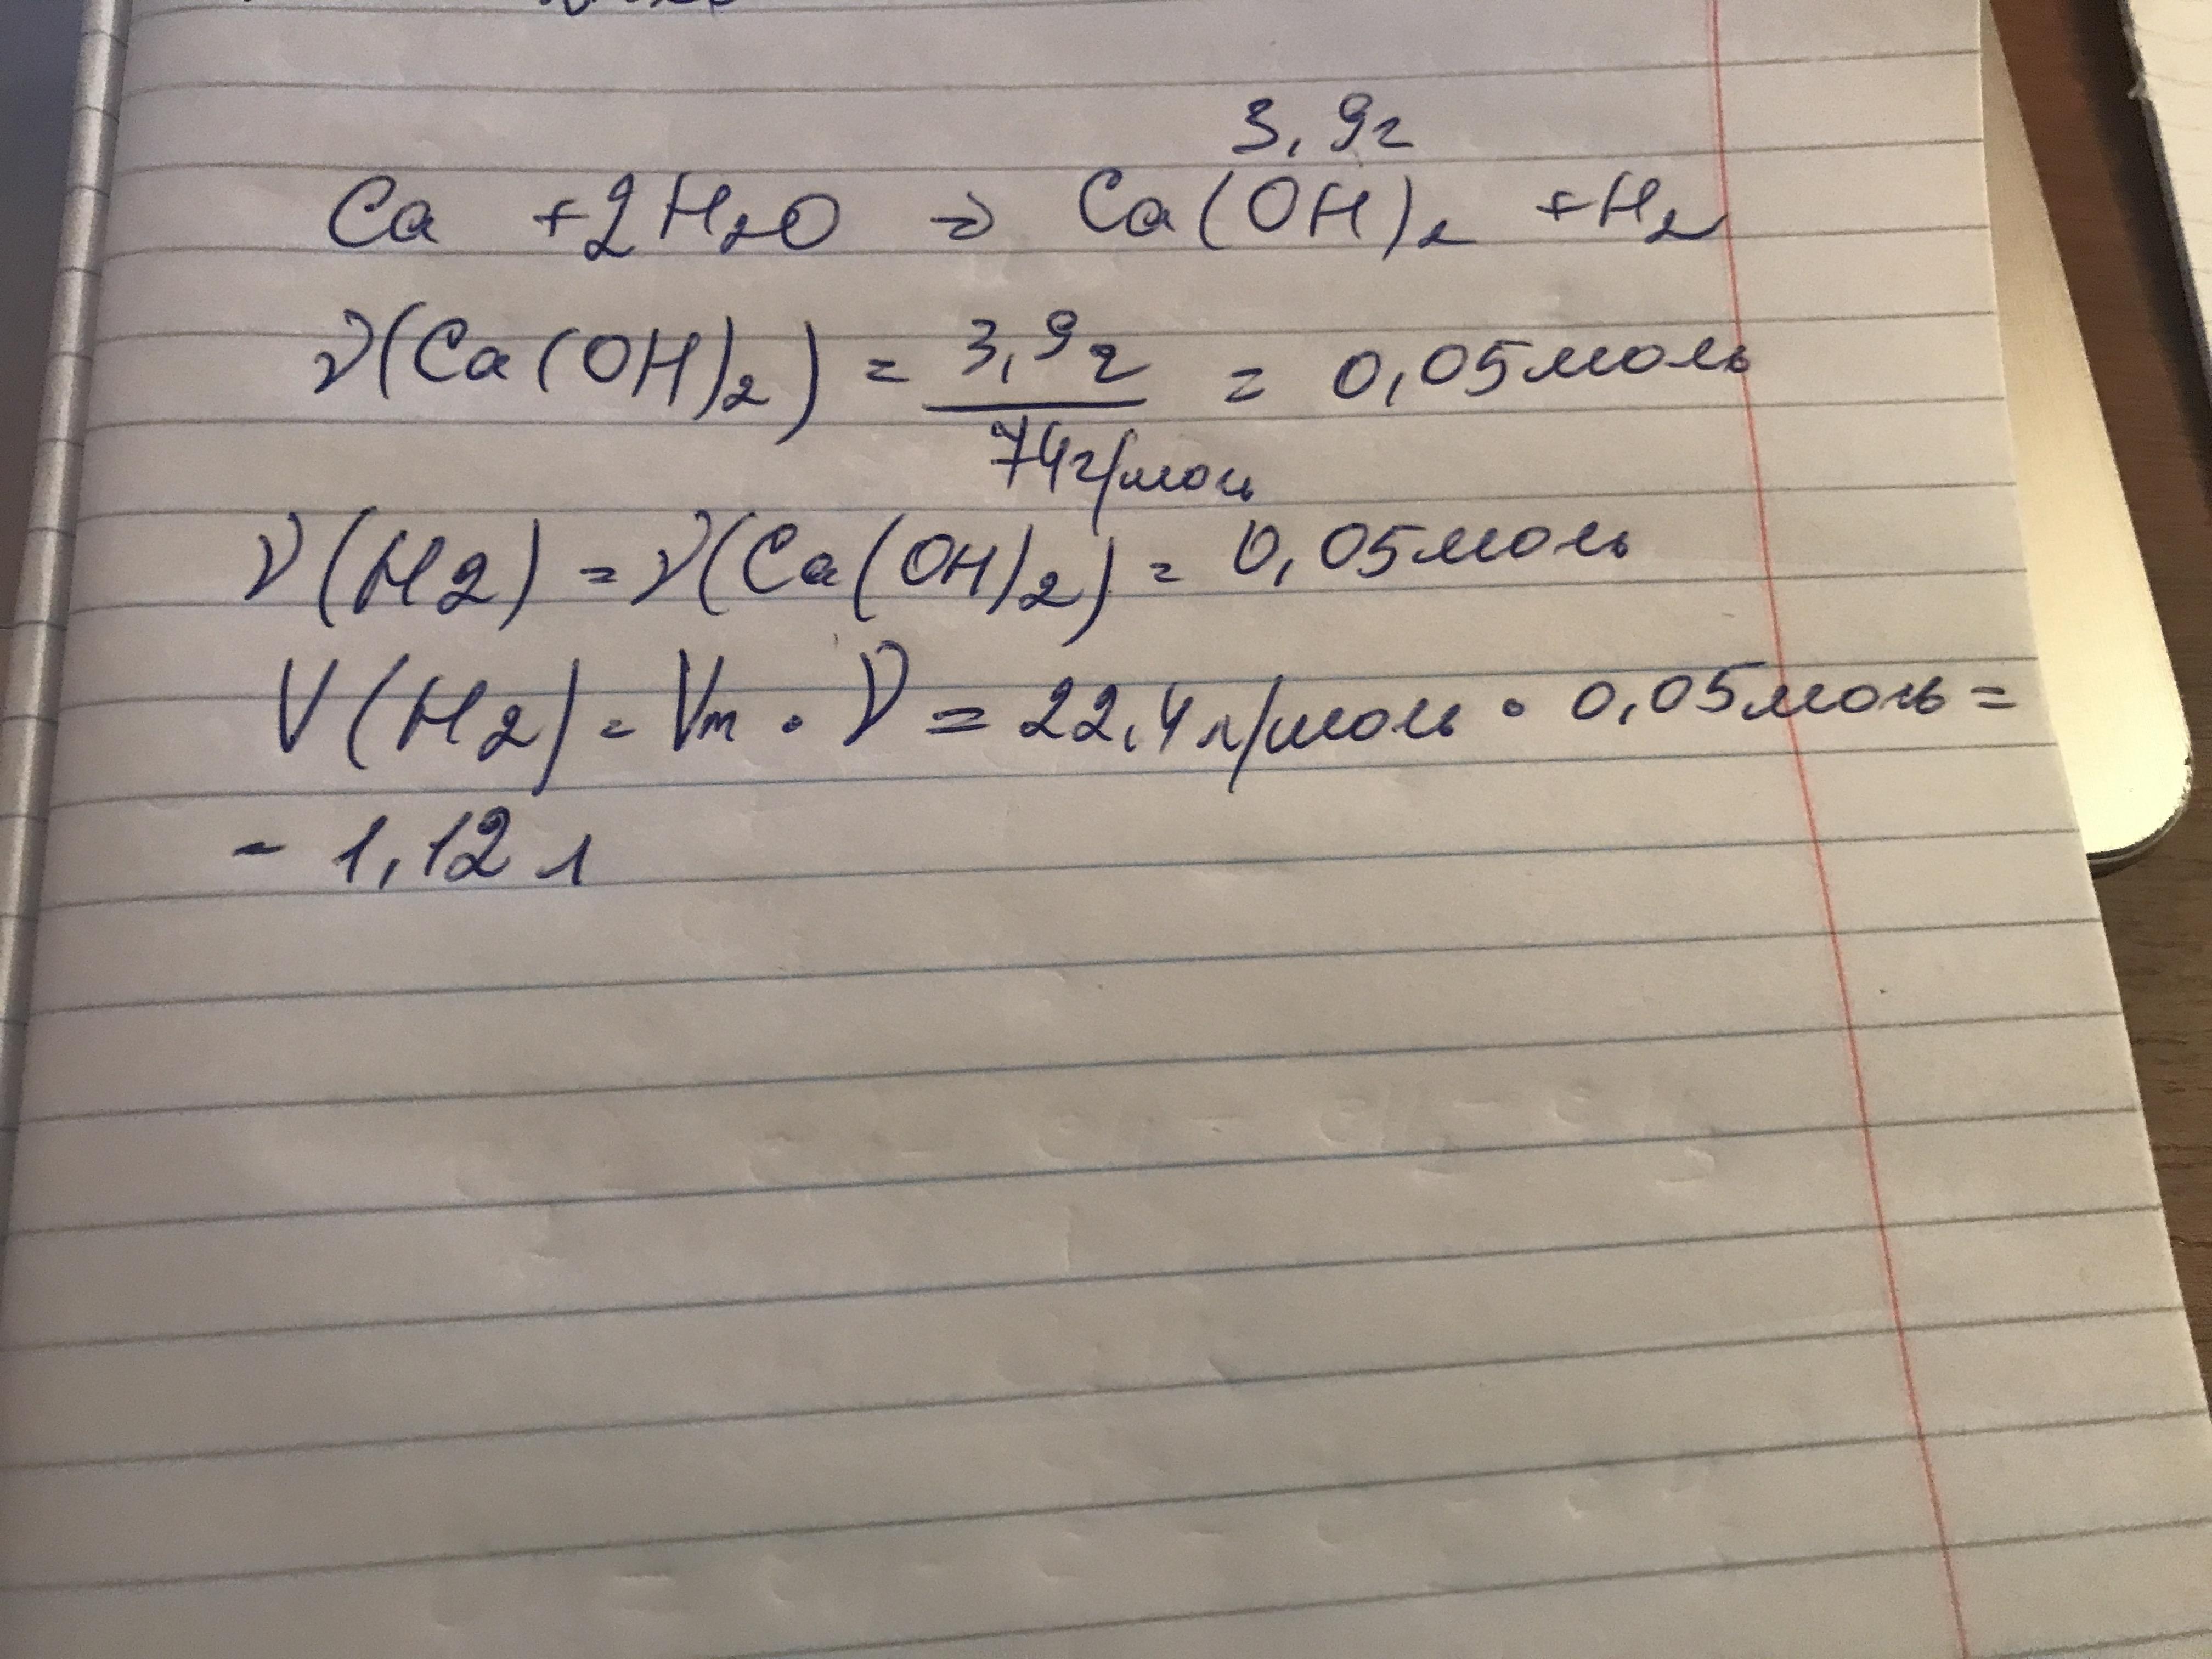 3,9г
Ca + 2H₂O → Ca(OH)₂ + H₂
ν(Ca(OH)₂) = 3,9г / 74г/моль = 0,05 моль
ν(H2) = ν(Ca(OH)₂) = 0,05 моль
V(H2) = Vm · ν = 22,4 л/моль · 0,05 моль =
- 1,12 л